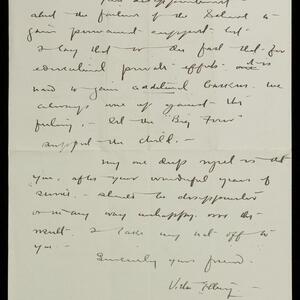 about the failure of the School to
gain permanent support but
I lay that to the fact that for
educational private efforts it is
hard to gain additional backers. We
always come up against the
feeling, - let the "Big Four"
support the child. -
My one deep regret is that
you, after your wonderful years of
service, - should be disappointed
or in any way unhappy over this
result. I take my hat off to
you -
Sincerely your friend.